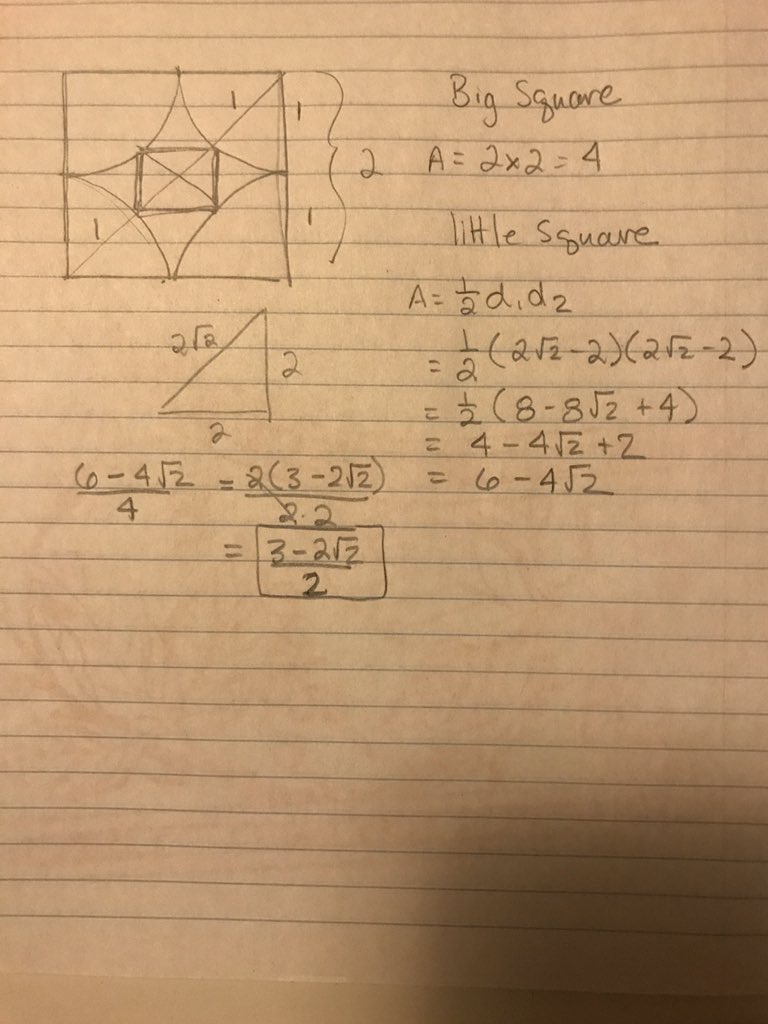 1
1
2
1
1
Big Square
A = 2×2 = 4
little Square
A = 1/2 d₁d₂
= 1/2 (2√2 - 2)(2√2 - 2)
= 1/2 (8 - 8√2 + 4)
= 4 - 4√2 + 2
= 6 - 4√2
2√2
2
2
(6 - 4√2)/4 = 2(3 - 2√2)/(2·2)
= (3 - 2√2)/2